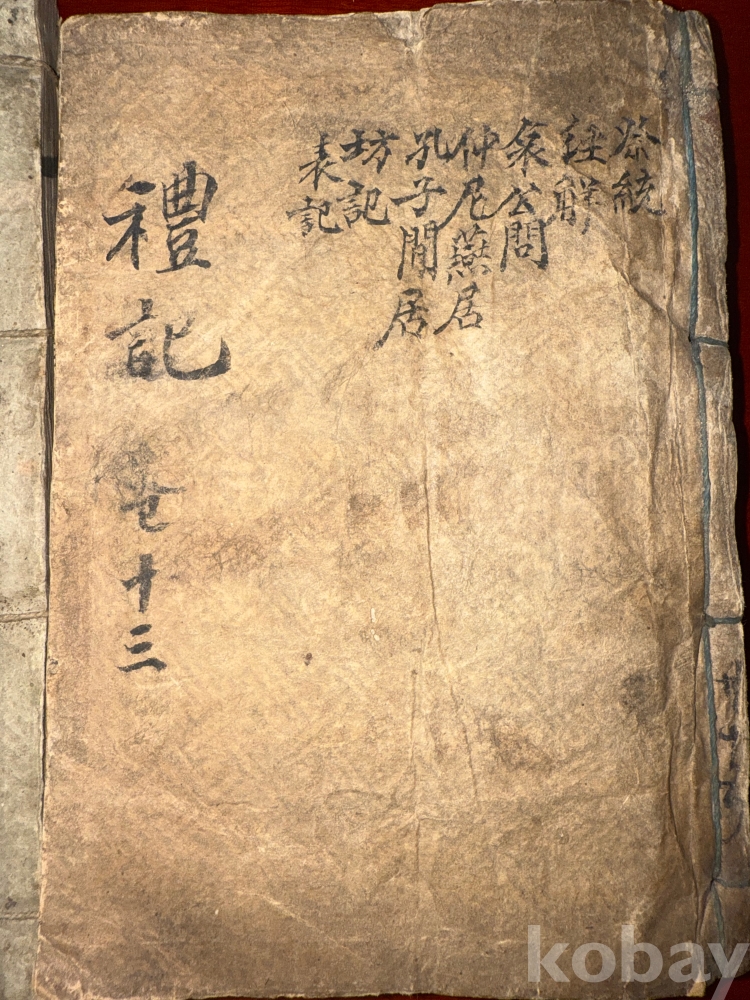 祭統
經解
哀公問
仲尼燕居
孔子閒居
坊記
表記
禮記 卷十三
kobay